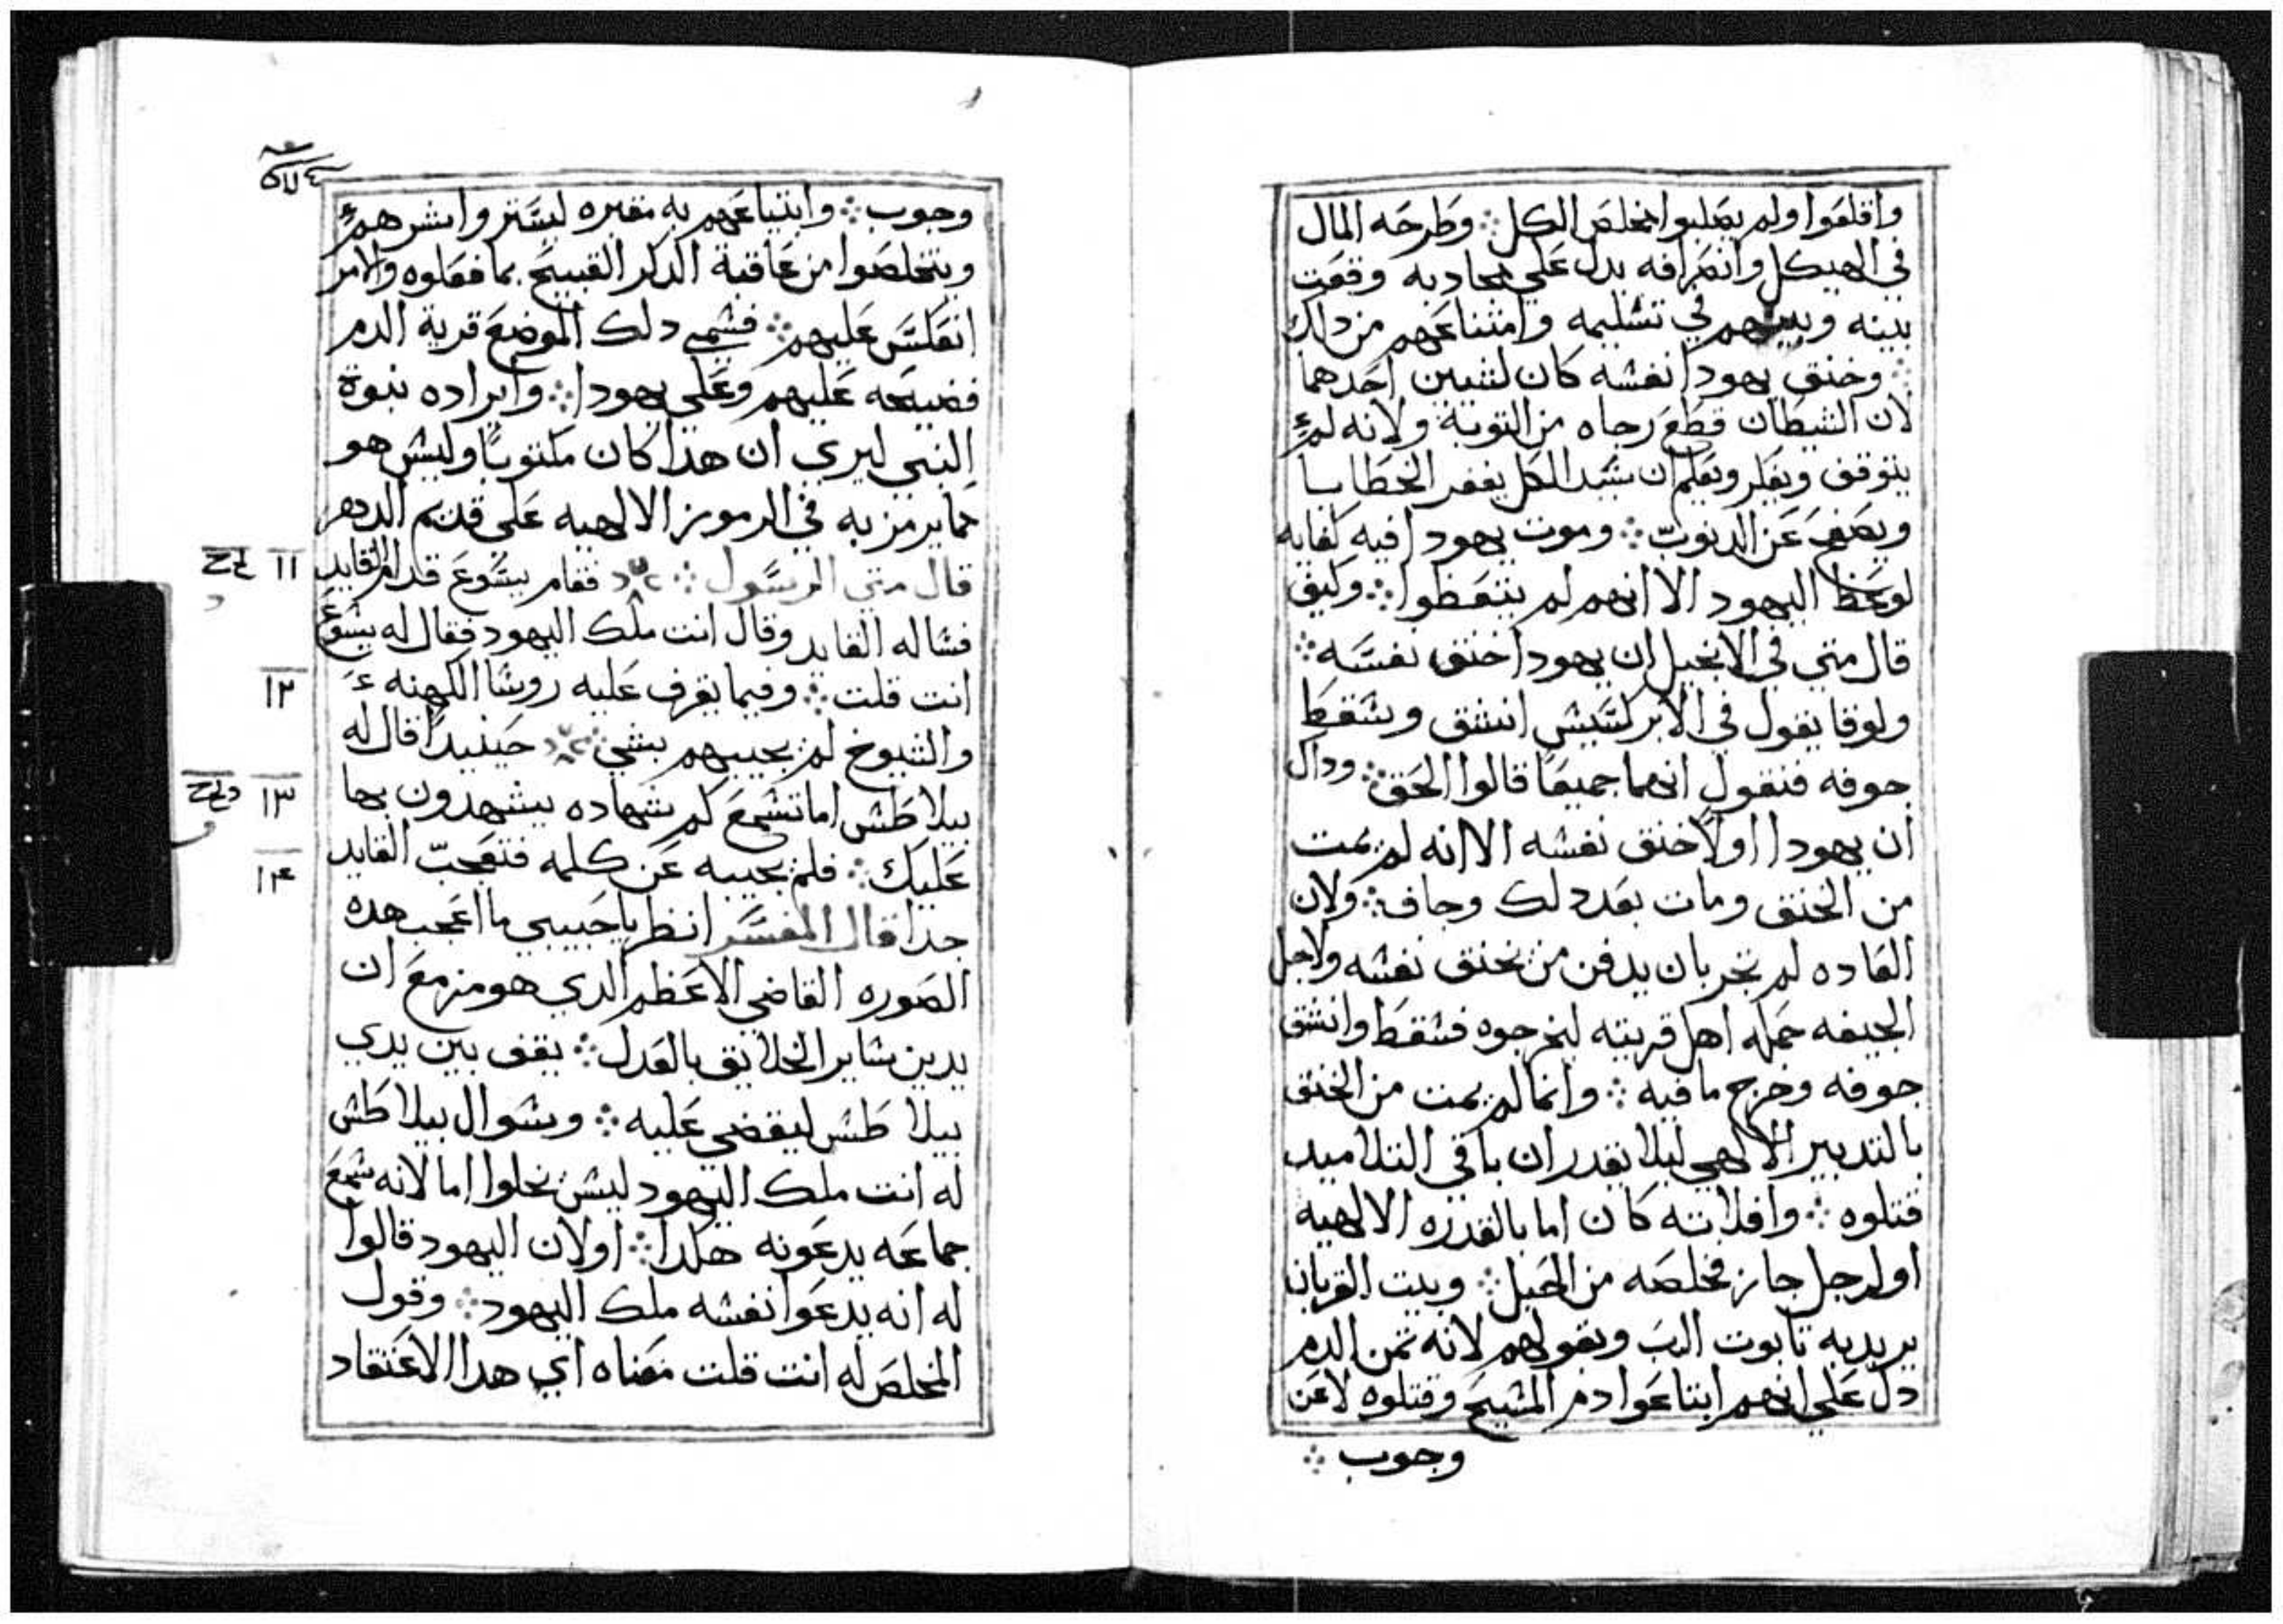 واقلعوا ولم يصلبوا مخلص الكل ∴ وطرحه المال
في الهيكل وانصرافه يدل علي محاربه وقعت
بينه وبينهم في تسليمه وامتناعهم من داك
∴ وخنق يهودا نفسه كان لشيين احدهما
لان الشيطان قطع رجاه من التوبة ولانه لم
يتوقف ويفكر ويعلم ان سيد الكل يغفر الخطايا
ويصفح عن الدنوب ∴ وموت يهودا فيه كفايه
لوعظ اليهود الا انهم لم يتعظوا ∴ وكيف
قال متي في الانجيل ان يهودا خنق نفسه ∴
ولوقا يقول في الابركسيس انشق وسقط
جوفه فنقول انهما جميعا قالوا الحق ∴ وداك
ان يهودا اولا خنق نفسه الا انه لم يمت
من الخنق ومات بعد دلك وجاف ∴ ولان
العاده لم تجر بان يدفن من يخنق نفسه ولاجل
الجيفه حمله اهل قريته ليخرجوه فسقط وانشق
جوفه وخرج ما فيه ∴ وانما لم يمت من الخنق
بالتدبير الالهي ليلا يقدر ان باقي التلاميد
قتلوه ∴ وافلاته كان اما بالقدره الالهيه
او لرجل جاز فخلصه من الحبل ∴ وبيت القربان
يريد به تابوت الرب وبقولهم لانه تمن الدم
دل علي انهم ابتاعوا دم المسيح وقتلوه لا عن
وجوب ∴
وجوب ∴ وابتياعهم به مقبره ليستر وا شرهم
ويتخلصوا من عاقبة الدكر القبيح بما فعلوه والامر
انعكس عليهم ∴ فسمي دلك الموضع قرية الدم
فضيحه عليهم وعلي يهودا ∴ وايراده نبوة
النبي ليري ان هدا كان مكتوبا وليس هو
مما يرمز به في الرموز الالهيه علي قديم الدهر
١١ قال متي الرسول ∴ فقام يسوع قدام القايد
فساله القايد وقال انت ملك اليهود فقال له يسوع
١٢ انت قلت ∴ وفيما يقرف عليه روسا الكهنه
والشيوخ لم يجيبهم بشي ∴ حينيدا قال له
١٣ بيلاطس اما تسمع كم شهاده يشهدون بها
١٤ عليك ∴ فلم يجيبه عن كلمه فتعجب القايد
جدا قال المفسر انظر يا حبيبي ما اعجب هده
الصوره القاضي الاعظم الدي هو مزمع ان
يدين ساير الخلايق بالعدل ∴ يقف بين يدي
بيلاطس ليقضي عليه ∴ وسوال بيلاطس
له انت ملك اليهود ليس يخلوا اما لانه سمع
جماعه يدعونه هكدا ∴ او لان اليهود قالوا
له انه يدعوا نفسه ملك اليهود ∴ وقول
المخلص له انت قلت معناه اي هدا الاعتقاد